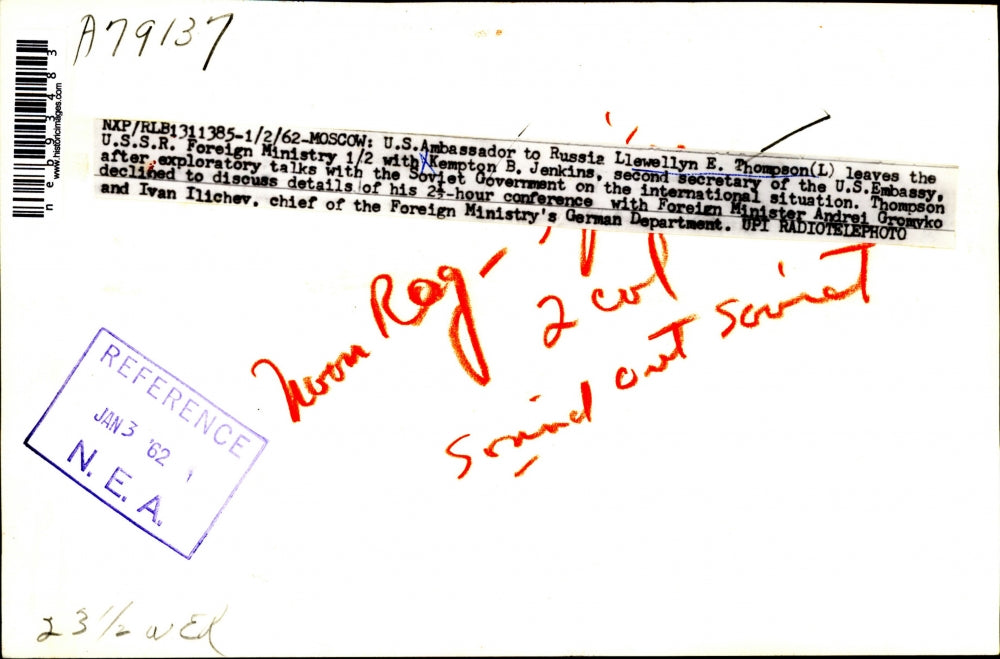 A79137
neb93483
www.historicimages.com
NXP/RLB1311385-1/2/62-MOSCOW: U.S.Ambassador to Russia Llewellyn E. Thompson(L) leaves the
U.S.S.R. Foreign Ministry 1/2 with Kempton B. Jenkins, second secretary of the U.S.Embassy,
after exploratory talks with the Soviet Government on the international situation. Thompson
declined to discuss details of his 2½-hour conference with Foreign Minister Andrei Gromyko
and Ivan Ilichev, chief of the Foreign Ministry's German Department. UPI RADIOTELEPHOTO
Noon Rag-
2 col
Sound out Soviet
REFERENCE
JAN 3 '62
N. E. A.
23 1/2